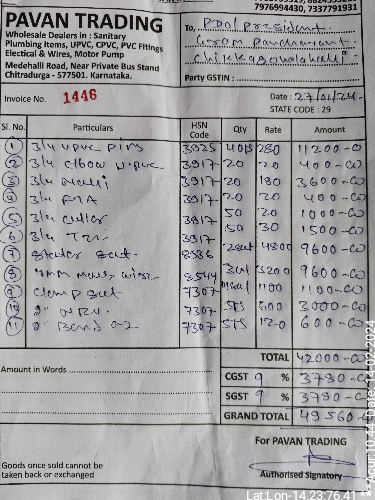 7976994430, 7337791931
PAVAN TRADING
Wholesale Dealers in : Sanitary
Plumbing Items, UPVC, CPVC, PVC Fitings
Electical & Wires, Motor Pump
Medehalli Road, Near Private Bus Stand
Chitradurga - 577501. Karnataka.
To, PDO/president
Gram Panchayant
Party GSTIN :
Invoice No. 1446
Date : 27/01/24
STATE CODE : 29
Sl. No. Particulars HSN Code Qty Rate Amount
1 3/4 UPVC 3925 40 280 11200-0
2 3/4 Elbow UPVC 3917 20 20 400-00
3 3/4 3917 20 180 3600-00
4 3/4 3917 20 20 400-00
5 3/4 3917 50 20 1000-00
6 3/4 3917 50 30 1500-00
7 2 4800 9600-00
8 8544 3 3200 9600-00
9 Clamp 7307 1100 1100-00
10 2" 7307 5 600 3000-00
11 2" Bend 7307 5 120 600-00
TOTAL 42000-00
Amount in Words
CGST 9 % 3780-0
SGST 9 % 3780-0
GRAND TOTAL 49560
For PAVAN TRADING
Goods once sold cannot be
taken back or exchanged
Authorised Signatory
Lat Lon-14.23,76.41
Date-14-02-2024